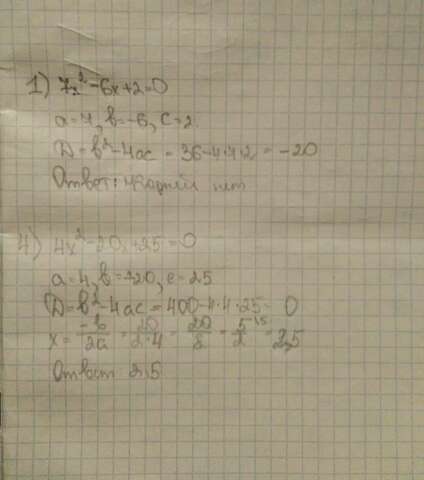 1) 7x² - 6x + 2 = 0
a = 7, b = -6, c = 2
D = b² - 4ac = 36 - 4·7·2 = -20
Ответ: корней нет
4) 4x² - 20x + 25 = 0
a = 4, b = -20, c = 25
D = b² - 4ac = 400 - 4·4·25 = 0
x = -b/2a = 20/2·4 = 20/8 = 5/2 = 2,5
Ответ 2,5